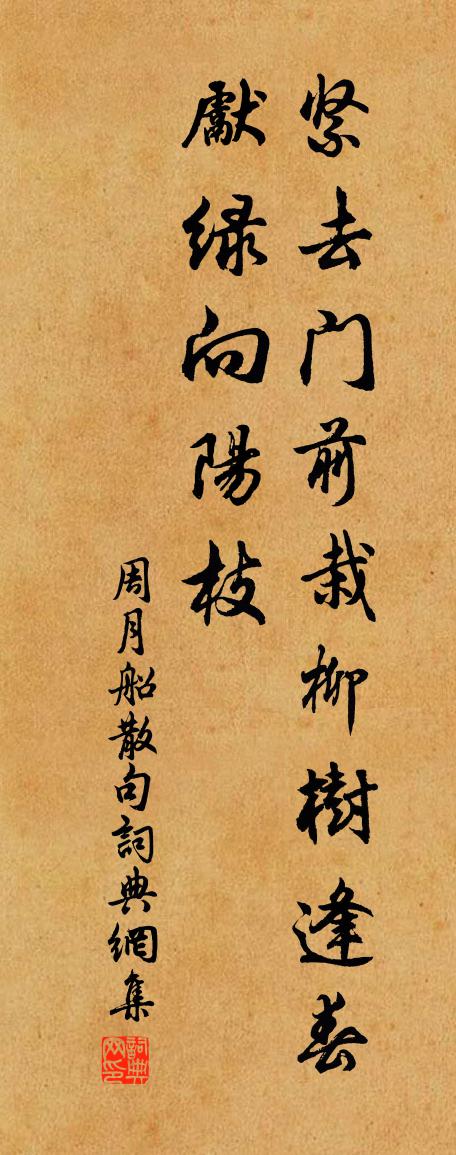 紧去門前栽柳樹逢春
獻綠向陽枝
周月船散句詞典網集
詞典网印